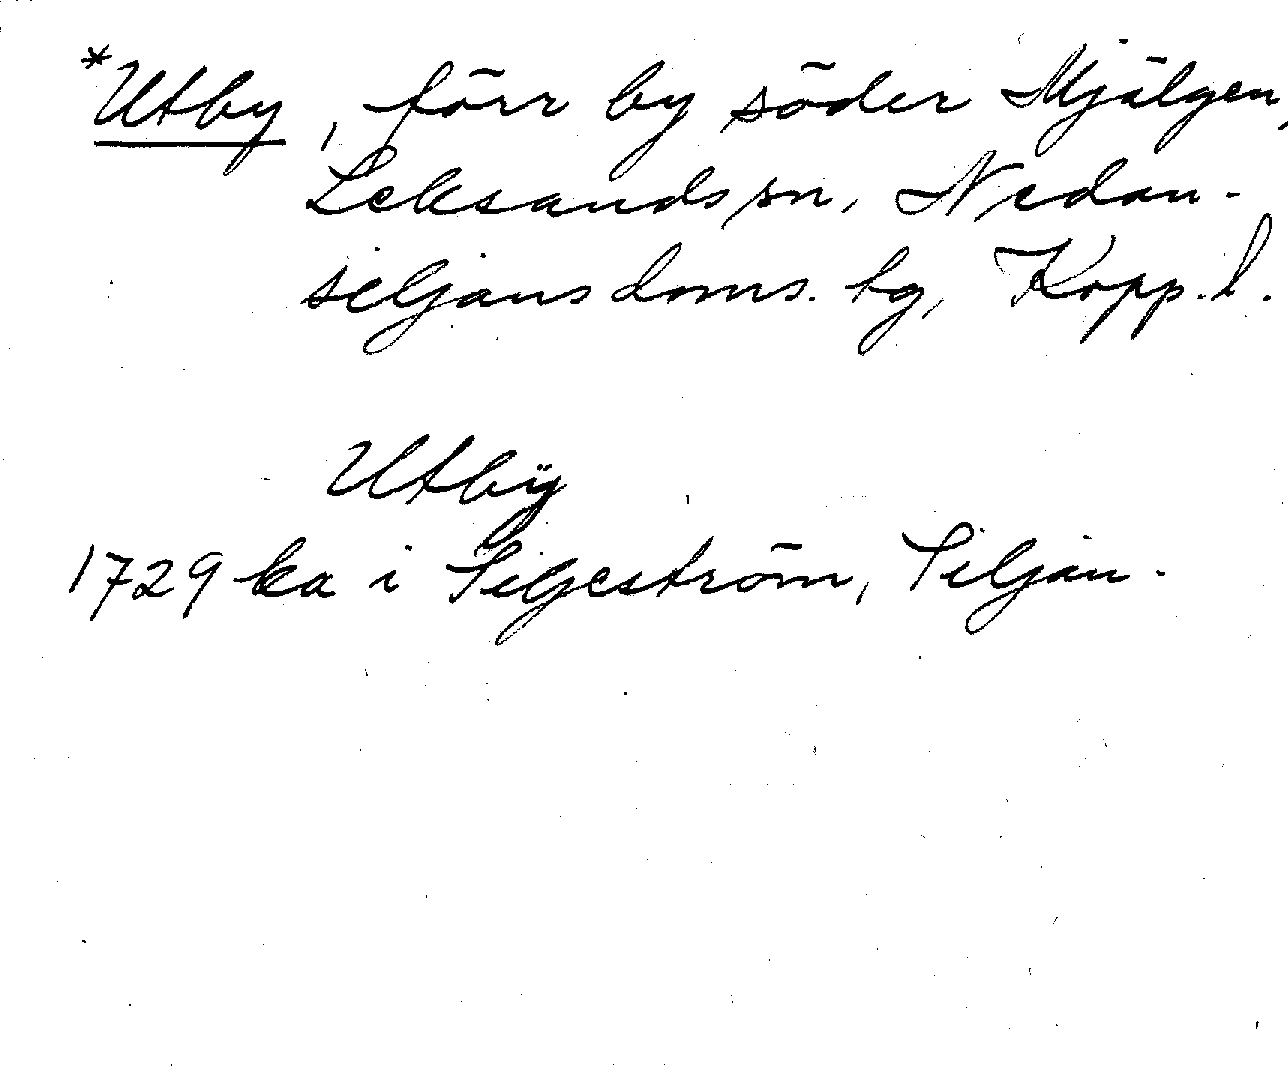 *Utby, förr by söder Mjälgen,
Leksands sn, Nedan-
siljans doms. tg, Kopp. l.
Utbÿ
1729 ka i Siljeström, Siljan.